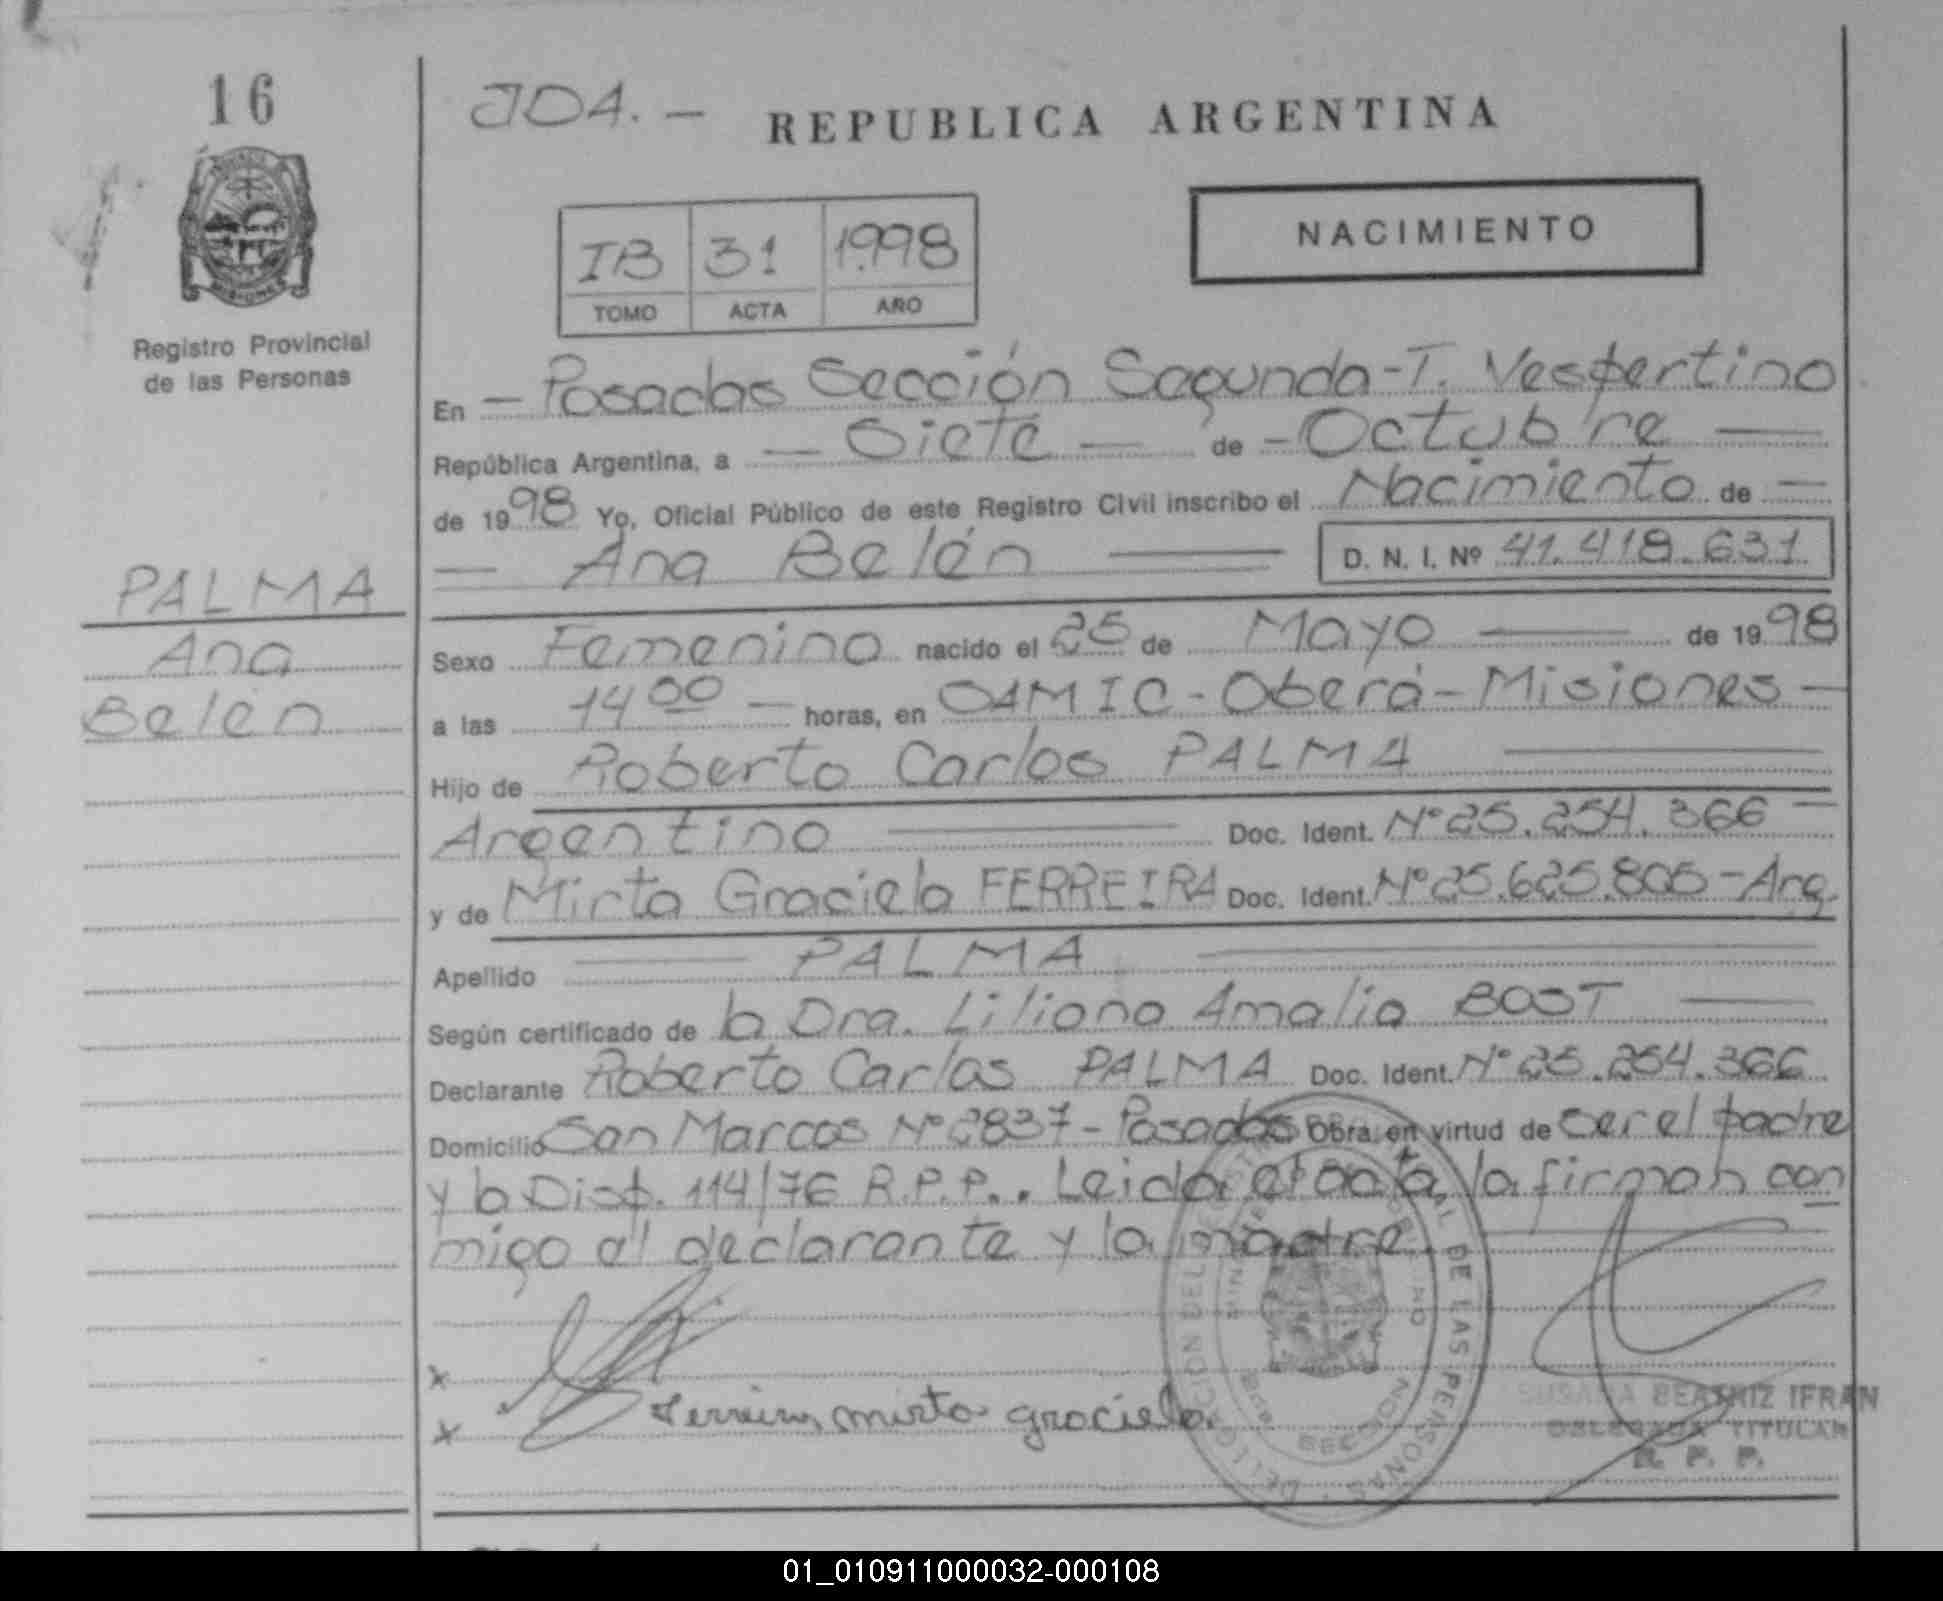 16
JO4. — REPUBLICA ARGENTINA
MISIONES
NACIMIENTO
IB 31 1.998
TOMO ACTA AÑO
Registro Provincial
de las Personas
En — Posadas Sección Segunda-T. Vespertino
República Argentina, a — Siete — de — Octubre —
de 1998 Yo, Oficial Público de este Registro Civil inscribo el Nacimiento de —
— Ana Belén — D. N. I. Nº 41.418.631
PALMA
Ana
Belén
Sexo Femenino nacido el 25 de Mayo — de 1998
a las 14 00 — horas, en SAMIC - Oberá - Misiones —
Hijo de Roberto Carlos PALMA —
Argentino — Doc. Ident. Nº 25.254.366 —
y de Mirta Graciela FERREIRA Doc. Ident. Nº 25.625.805 - Arg.
Apellido — PALMA —
Según certificado de la Dra. Liliana Amalia BOST —
Declarante Roberto Carlos PALMA Doc. Ident. Nº 25.254.366
Domicilio San Marcos Nº 2837 - Posadas Obra en virtud de ser el padre
y la Disp. 114/76 R.P.P.. Leida el acta, la firman con
migo el declarante y la madre. —
x
x Ferreira mirta graciela.
SUSANA BEATRIZ IFRAN
DELEGADA TITULAR
R. P. P.
DE LAS PERSONAS
01_010911000032-000108